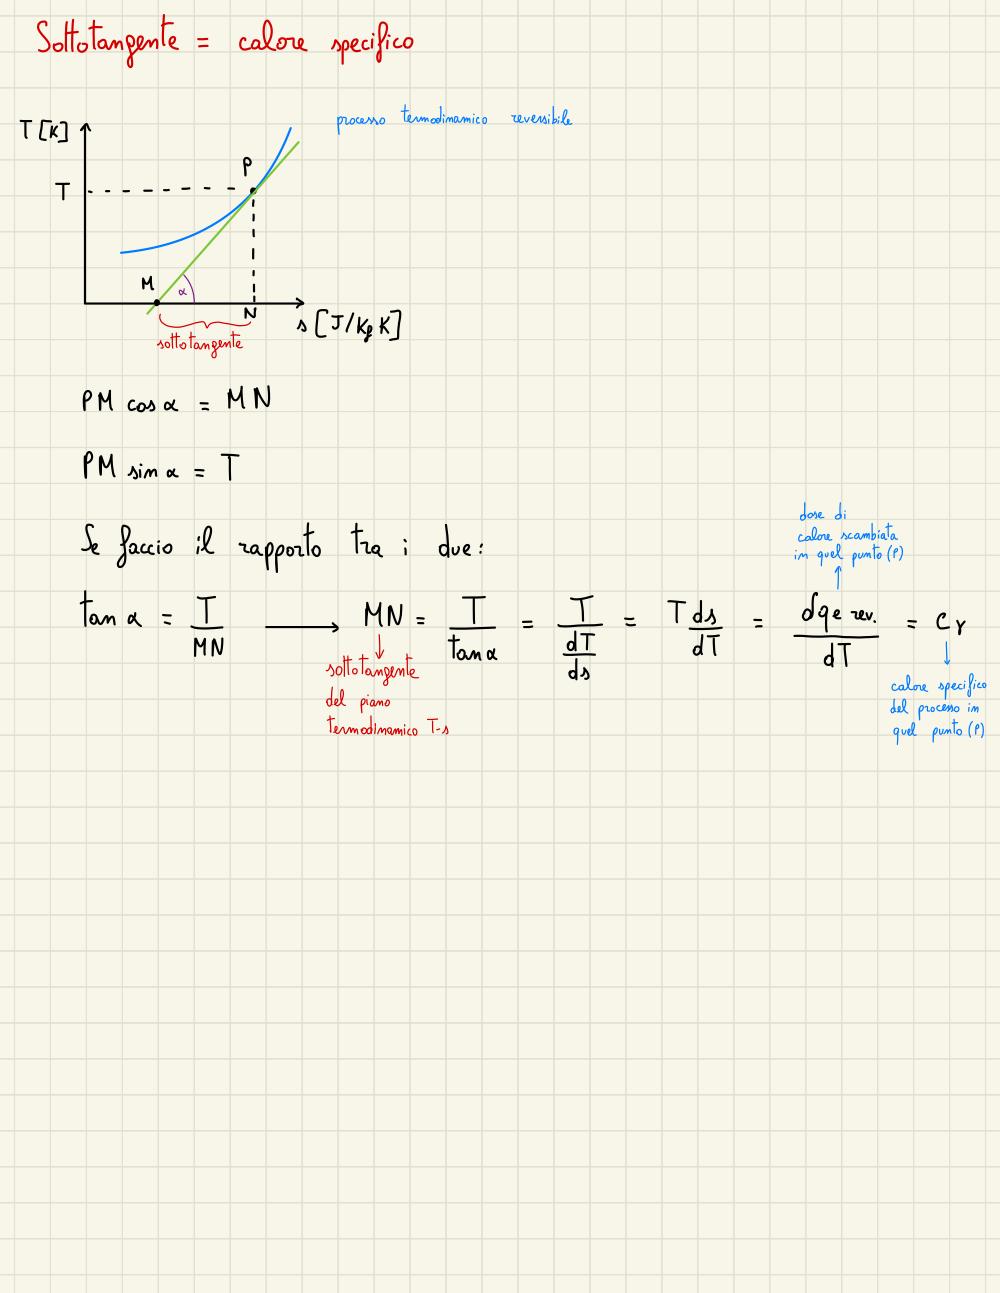 Sottotangente = calore specifico
processo termodinamico reversibile
T [K]
P
T
M
α
N
s [J/kg K]
sottotangente
PM cos α = MN
PM sin α = T
Se faccio il rapporto tra i due:
dose di
calore scambiata
in quel punto (P)
tan α = T/MN → MN = T/tan α = T/(dT/ds) = T ds/dT = δqe rev./dT = cγ
sottotangente
del piano
termodinamico T-s
calore specifico
del processo in
quel punto (P)